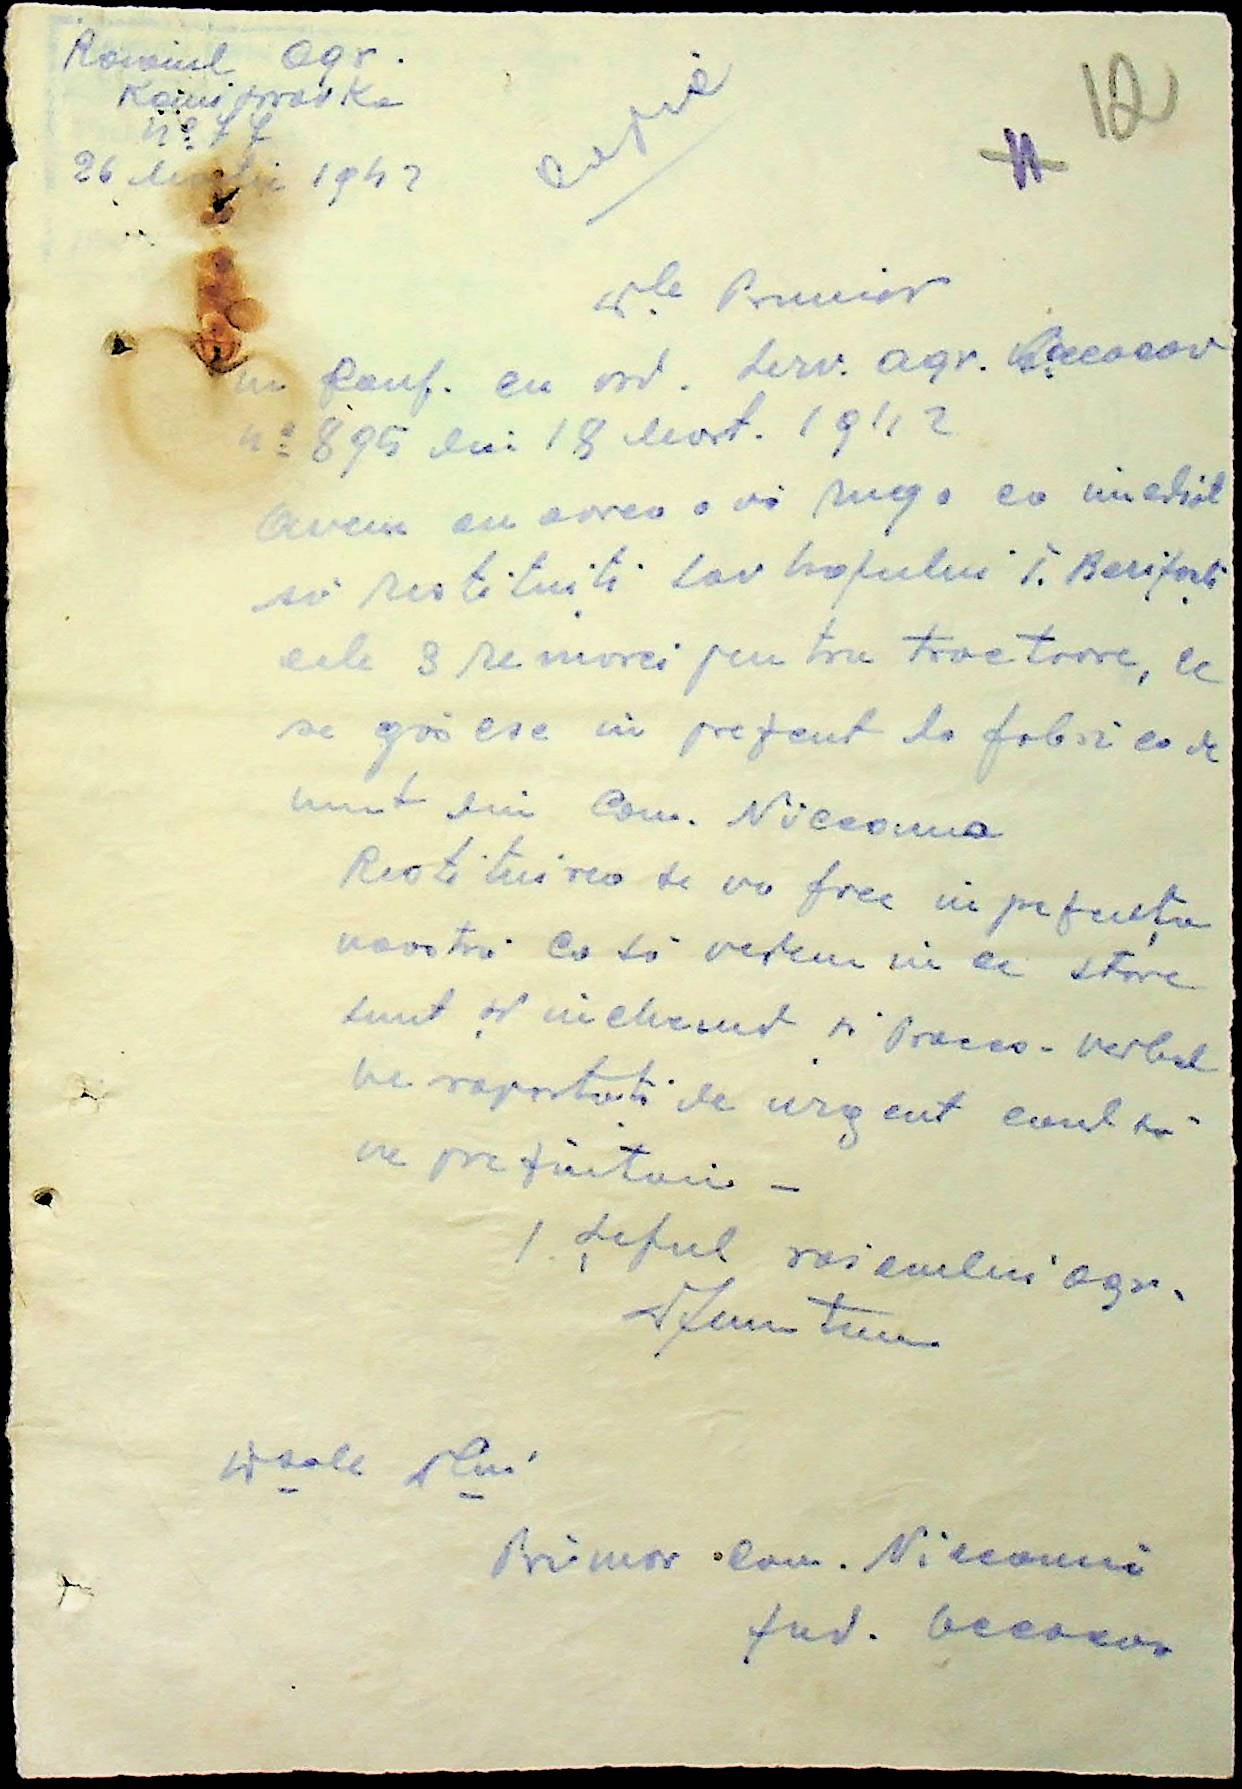 Raionul agr.
Kamizovvka
No 77
26 Martie 1942
copie
12
11
Dle Primar
In conf. cu ord. serv. agr. Oceacov
No 895 din 18 Mart. 1942
Avem onoarea a vă ruga ca imediat
să restituiți sov hozului I.
cele 3 remorci pentru tractoare, ce
se găsesc în prezent la fabrica de
unt din Com. Niccanna
Restituirea se va face în prezența
noastră ca să vedem în ce stare
sunt și încheind și Proces-verbal
Ne raportați de urgent când să
ne prezintăm -
/ Șeful raionului agr.
Dsale Dlui
Primar Com. Niccanni
Jud. Oceacov